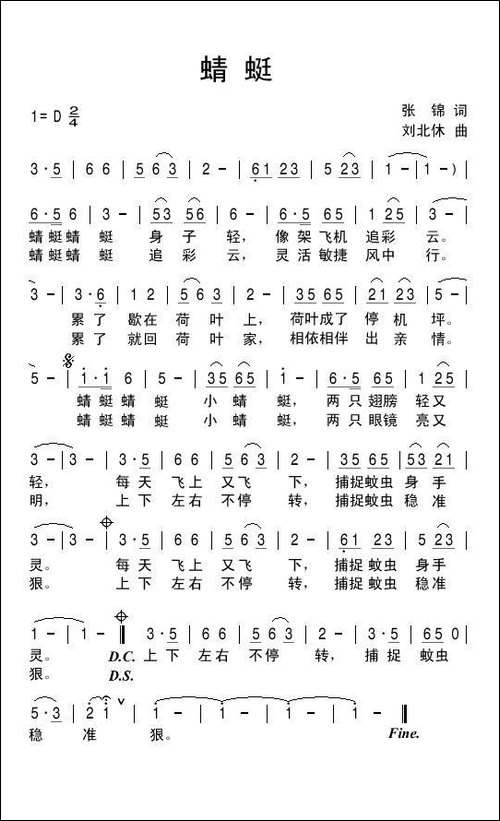 蜻 蜓
1= D 2/4
张 锦 词
刘北休 曲
3·5 | 6 6 | 5 6 3 | 2 - | 61 23 | 5 23 | 1 - | 1 - ) |
6·5 6 | 3 - | 53 56 | 6 - | 6·5 35 | 65 65 | 1 25 | 3 - |
蜻 蜓 蜻 蜓 身 子 轻, 像 架 飞 机 追 彩 云。
蜻 蜓 蜻 蜓 追 彩 云, 灵 活 敏 捷 风 中 行。
3 - | 3·6 | 1 2 | 5 6 3 | 2 - | 35 65 | 21 23 | 5 - |
累 了 歇 在 荷 叶 上, 荷叶成了 停 机 坪。
累 了 就 回 荷 叶 家, 相依相伴 出 亲 情。
5 - | 1·1 6 | 5 - | 35 65 | 1 - | 6·5 65 | 1 25 |
蜻 蜓 蜻 蜓 小 蜻 蜓, 两 只 翅膀 轻 又
蜻 蜓 蜻 蜓 小 蜻 蜓, 两 只 眼镜 亮 又
3 - | 3 - | 3·5 | 6 6 | 5 6 3 | 2 - | 35 65 | 53 21 |
轻, 每 天 飞 上 又 飞 下, 捕捉蚊虫 身 手
明, 上 下 左 右 不 停 转, 捕捉蚊虫 稳 准
3 - | 3 - | 3·5 | 6 6 | 5 6 3 | 2 - | 61 23 | 5 23 |
灵。 每 天 飞 上 又 飞 下, 捕捉 蚊虫 身手
狠。 上 下 左 右 不 停 转, 捕捉 蚊虫 稳准
1 - | 1 - ‖ 3·5 | 6 6 | 5 6 3 | 2 - | 3·5 | 65 0 |
灵。 D.C. 上 下 左 右 不 停 转, 捕 捉 蚊虫
狠。 D.S.
5·3 | 2 1 ∨ | 1 - | 1 - | 1 - | 1 - ‖
稳 准 狠。 Fine.